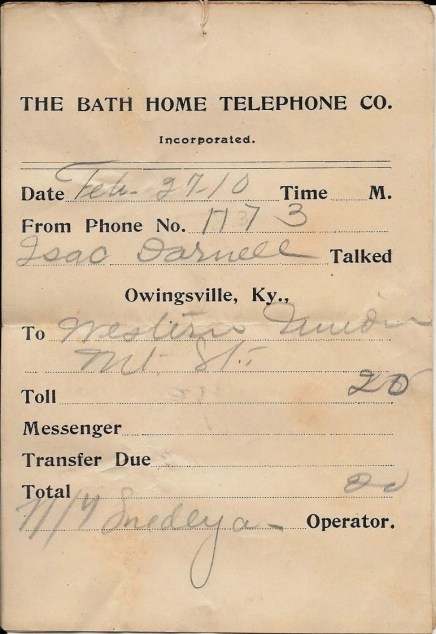 THE BATH HOME TELEPHONE CO.
Incorporated.
Date Feb-27-10 Time M.
From Phone No. 173
Isac Darnell Talked
Owingsville, Ky.,
To Western Union
Mt. St.
Toll 20
Messenger
Transfer Due
Total 20
Operator.